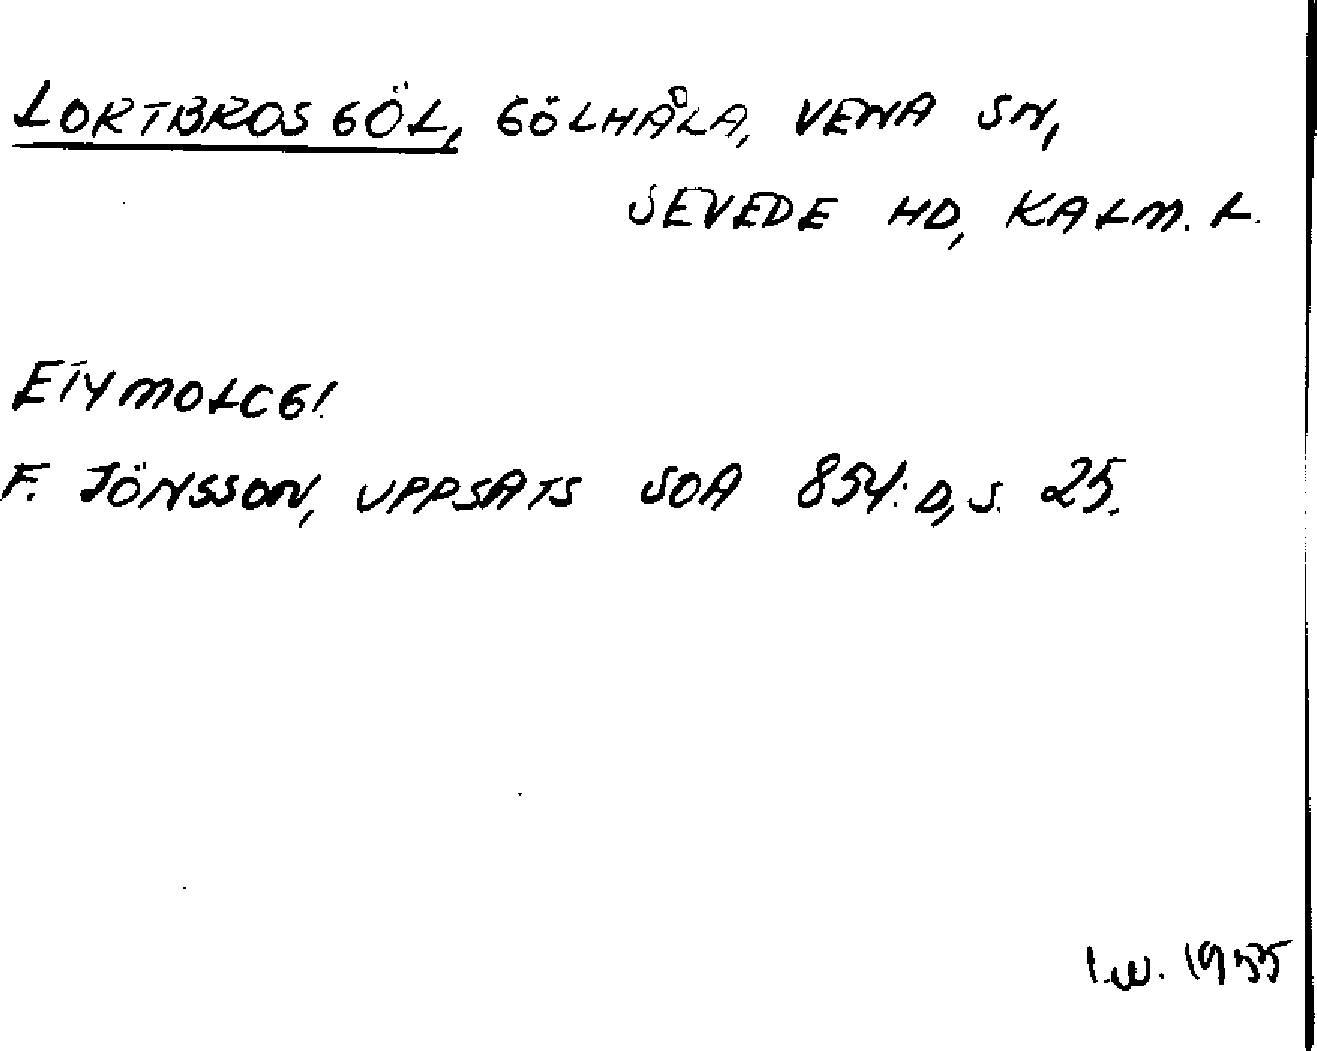 LORTBROS GÖL, GÖLHÅLA, VENA SN,
SEVEDE HD, KALM. L.
ETYMOLOGI.
F. JÖNSSON, UPPSATS SOA 854:D, S. 25.
I.W. 1955